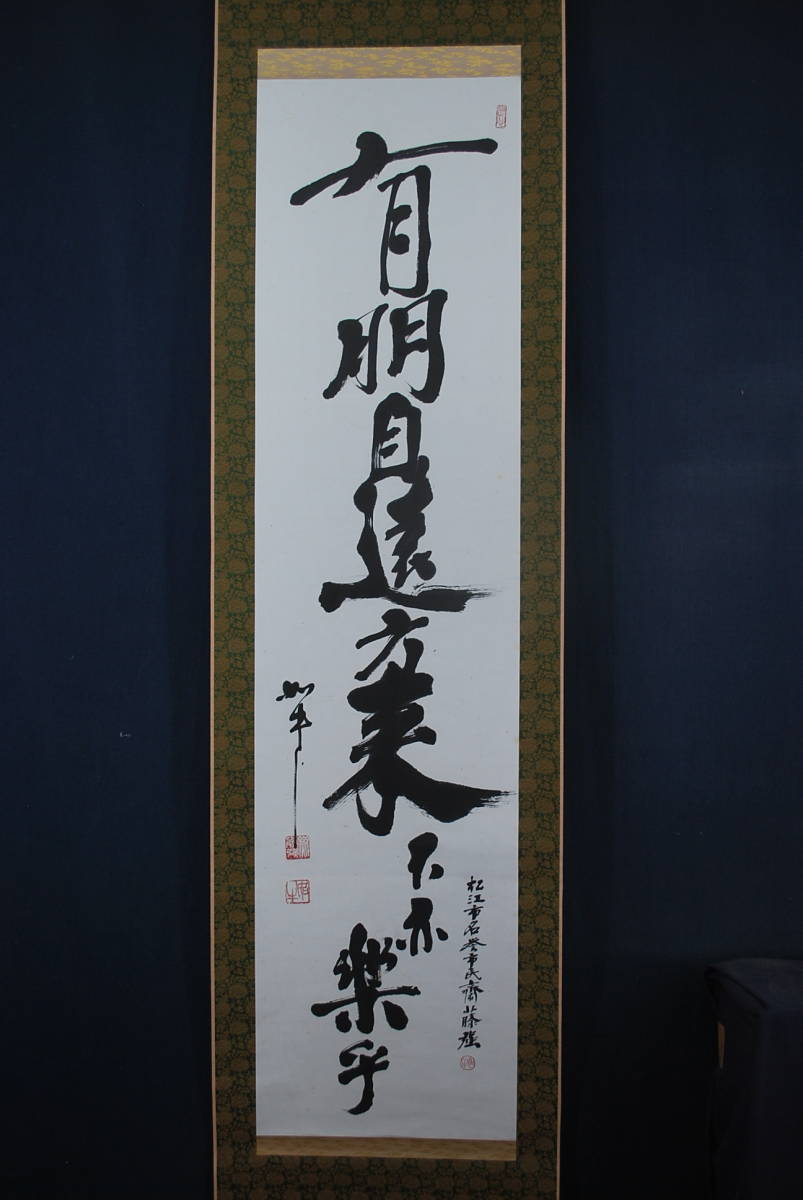 有朋自遠方来不亦樂乎
松江市名誉市民齋藤強